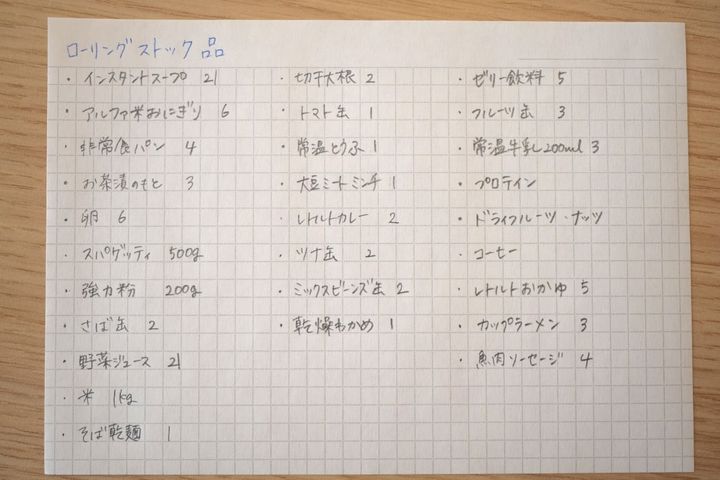 ローリングストック品
・インスタントスープ 21
・アルファ米おにぎり 6
・非常食パン 4
・お茶漬のもと 3
・卵 6
・スパゲッティ 500g
・強力粉 200g
・さば缶 2
・野菜ジュース 21
・米 1kg
・そば乾麺 1
・切干大根 2
・トマト缶 1
・常温とうふ 1
・大豆ミートミンチ 1
・レトルトカレー 2
・ツナ缶 2
・ミックスビーンズ缶 2
・乾燥わかめ 1
・ゼリー飲料 5
・フルーツ缶 3
・常温牛乳200ml 3
・プロテイン
・ドライフルーツ・ナッツ
・コーヒー
・レトルトおかゆ 5
・カップラーメン 3
・魚肉ソーセージ 4